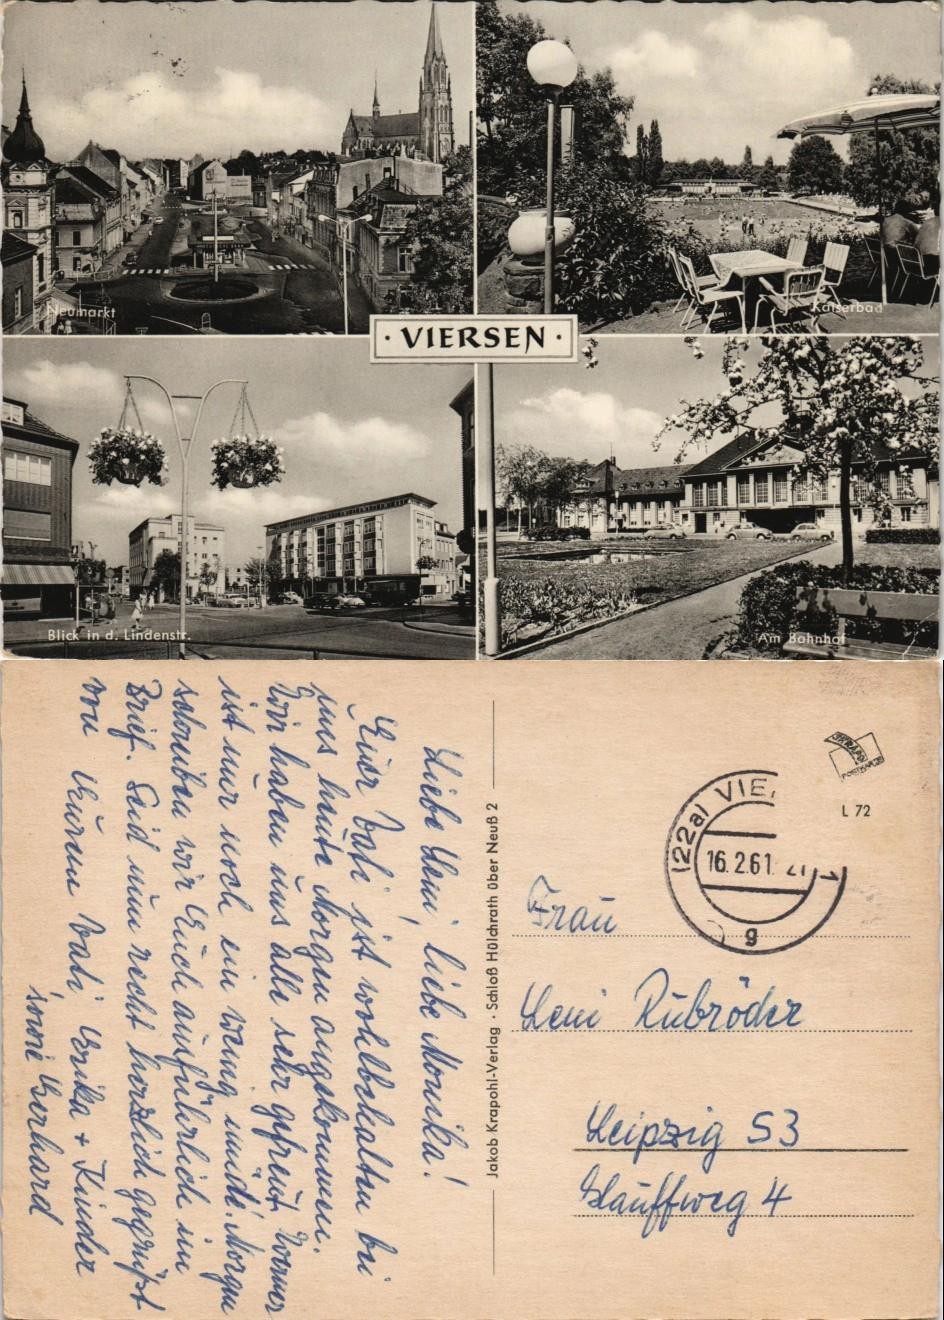 Neumarkt
Kaiserbad
· VIERSEN ·
Blick in d. Lindenstr.
Am Bahnhof
Liebe Leni, liebe Monika!
Euer Vati ist wohlbehalten bei
uns heute Morgen angekommen.
Wir haben uns alle sehr gefreut. Werner
ist nur noch ein wenig müde! Morgen
schreiben wir Euch ausführlich im
Brief. Seid nun recht herzlich gegrüßt
von Eurem Vati, Erika + Kinder
sowie Gerhard
Jakob Krapohl-Verlag · Schloß Hülchrath über Neuß 2
KRAPOHL
POSTKARTE
L 72
(22a) VIE
16.2.61. 21
1
g
Frau
Leni Rubröder
Leipzig S3
Hauffweg 4